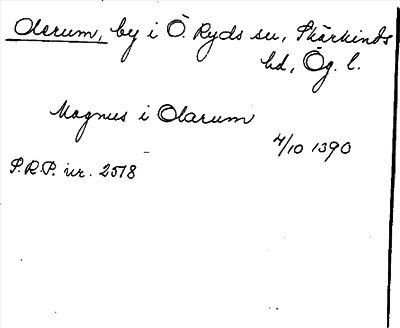 Olerum, by i Ö. Ryds sn, Skärkinds
hd, Ög. l.
Magnus i Olarum
4/10 1390
P.R.P. nr. 2518